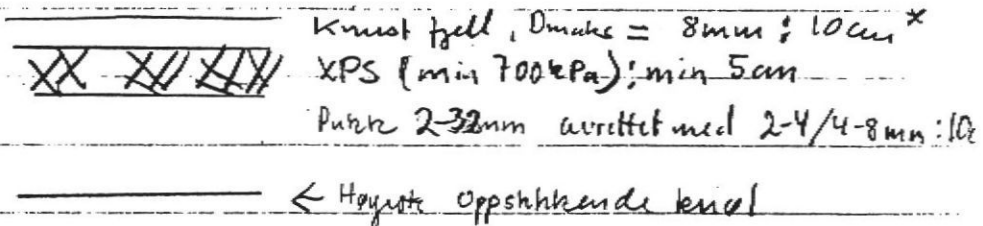 Knust fjell, Dmaks = 8mm : 10cm *
XPS (min 700kPa): min 5cm
Pukk 2-32mm avrettet med 2-4/4-8mm : 10c
← Høyeste oppstikkende knøl